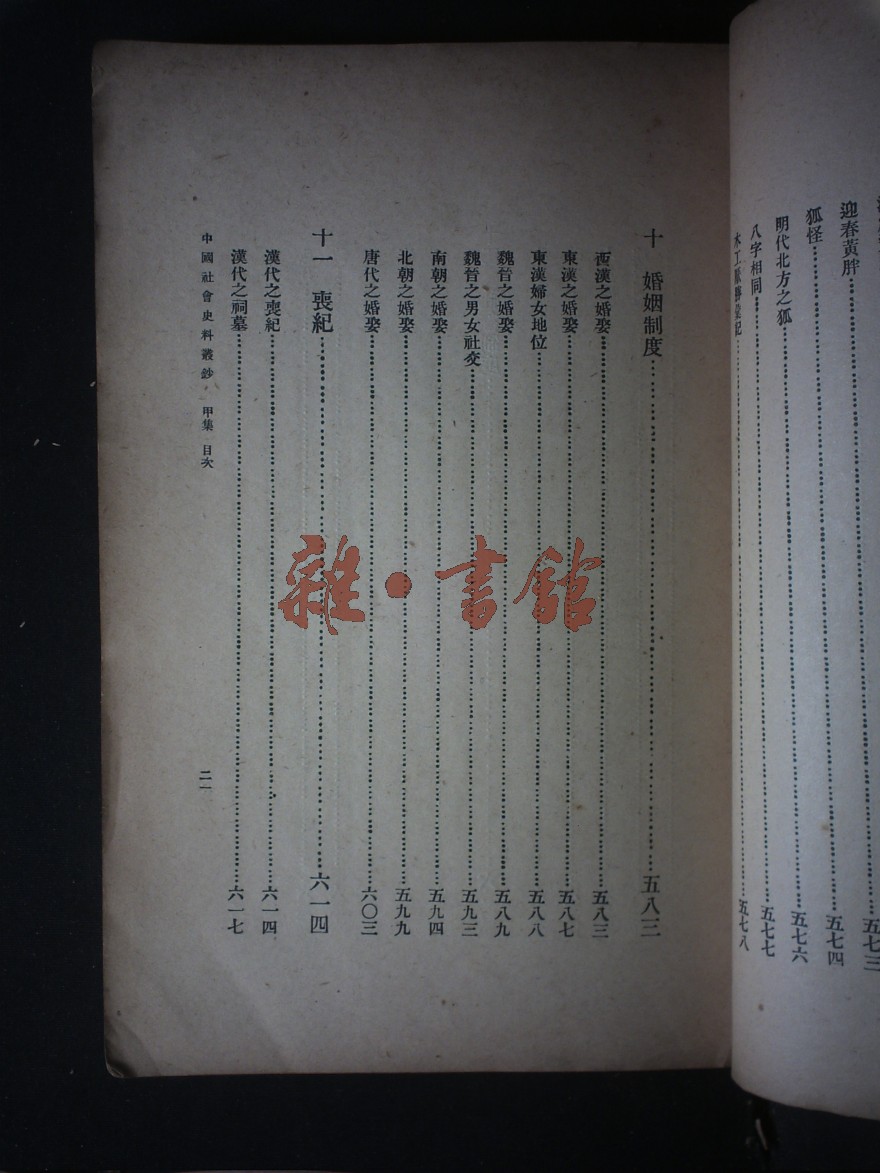 迎春黃胖
狐怪……五七四
明代北方之狐……五七六
八字相同……五七七
五七八
十 婚姻制度……五八三
西漢之婚娶……五八三
東漢之婚娶……五八七
東漢婦女地位……五八八
魏晉之婚娶……五八九
魏晉之男女社交……五九三
南朝之婚娶……五九四
北朝之婚娶……五九九
唐代之婚娶……六〇三
十一 喪紀……六一四
漢代之喪紀……六一四
漢代之祠墓……六一七
中國社會史料叢鈔 甲集 目次
二一
雜·書館